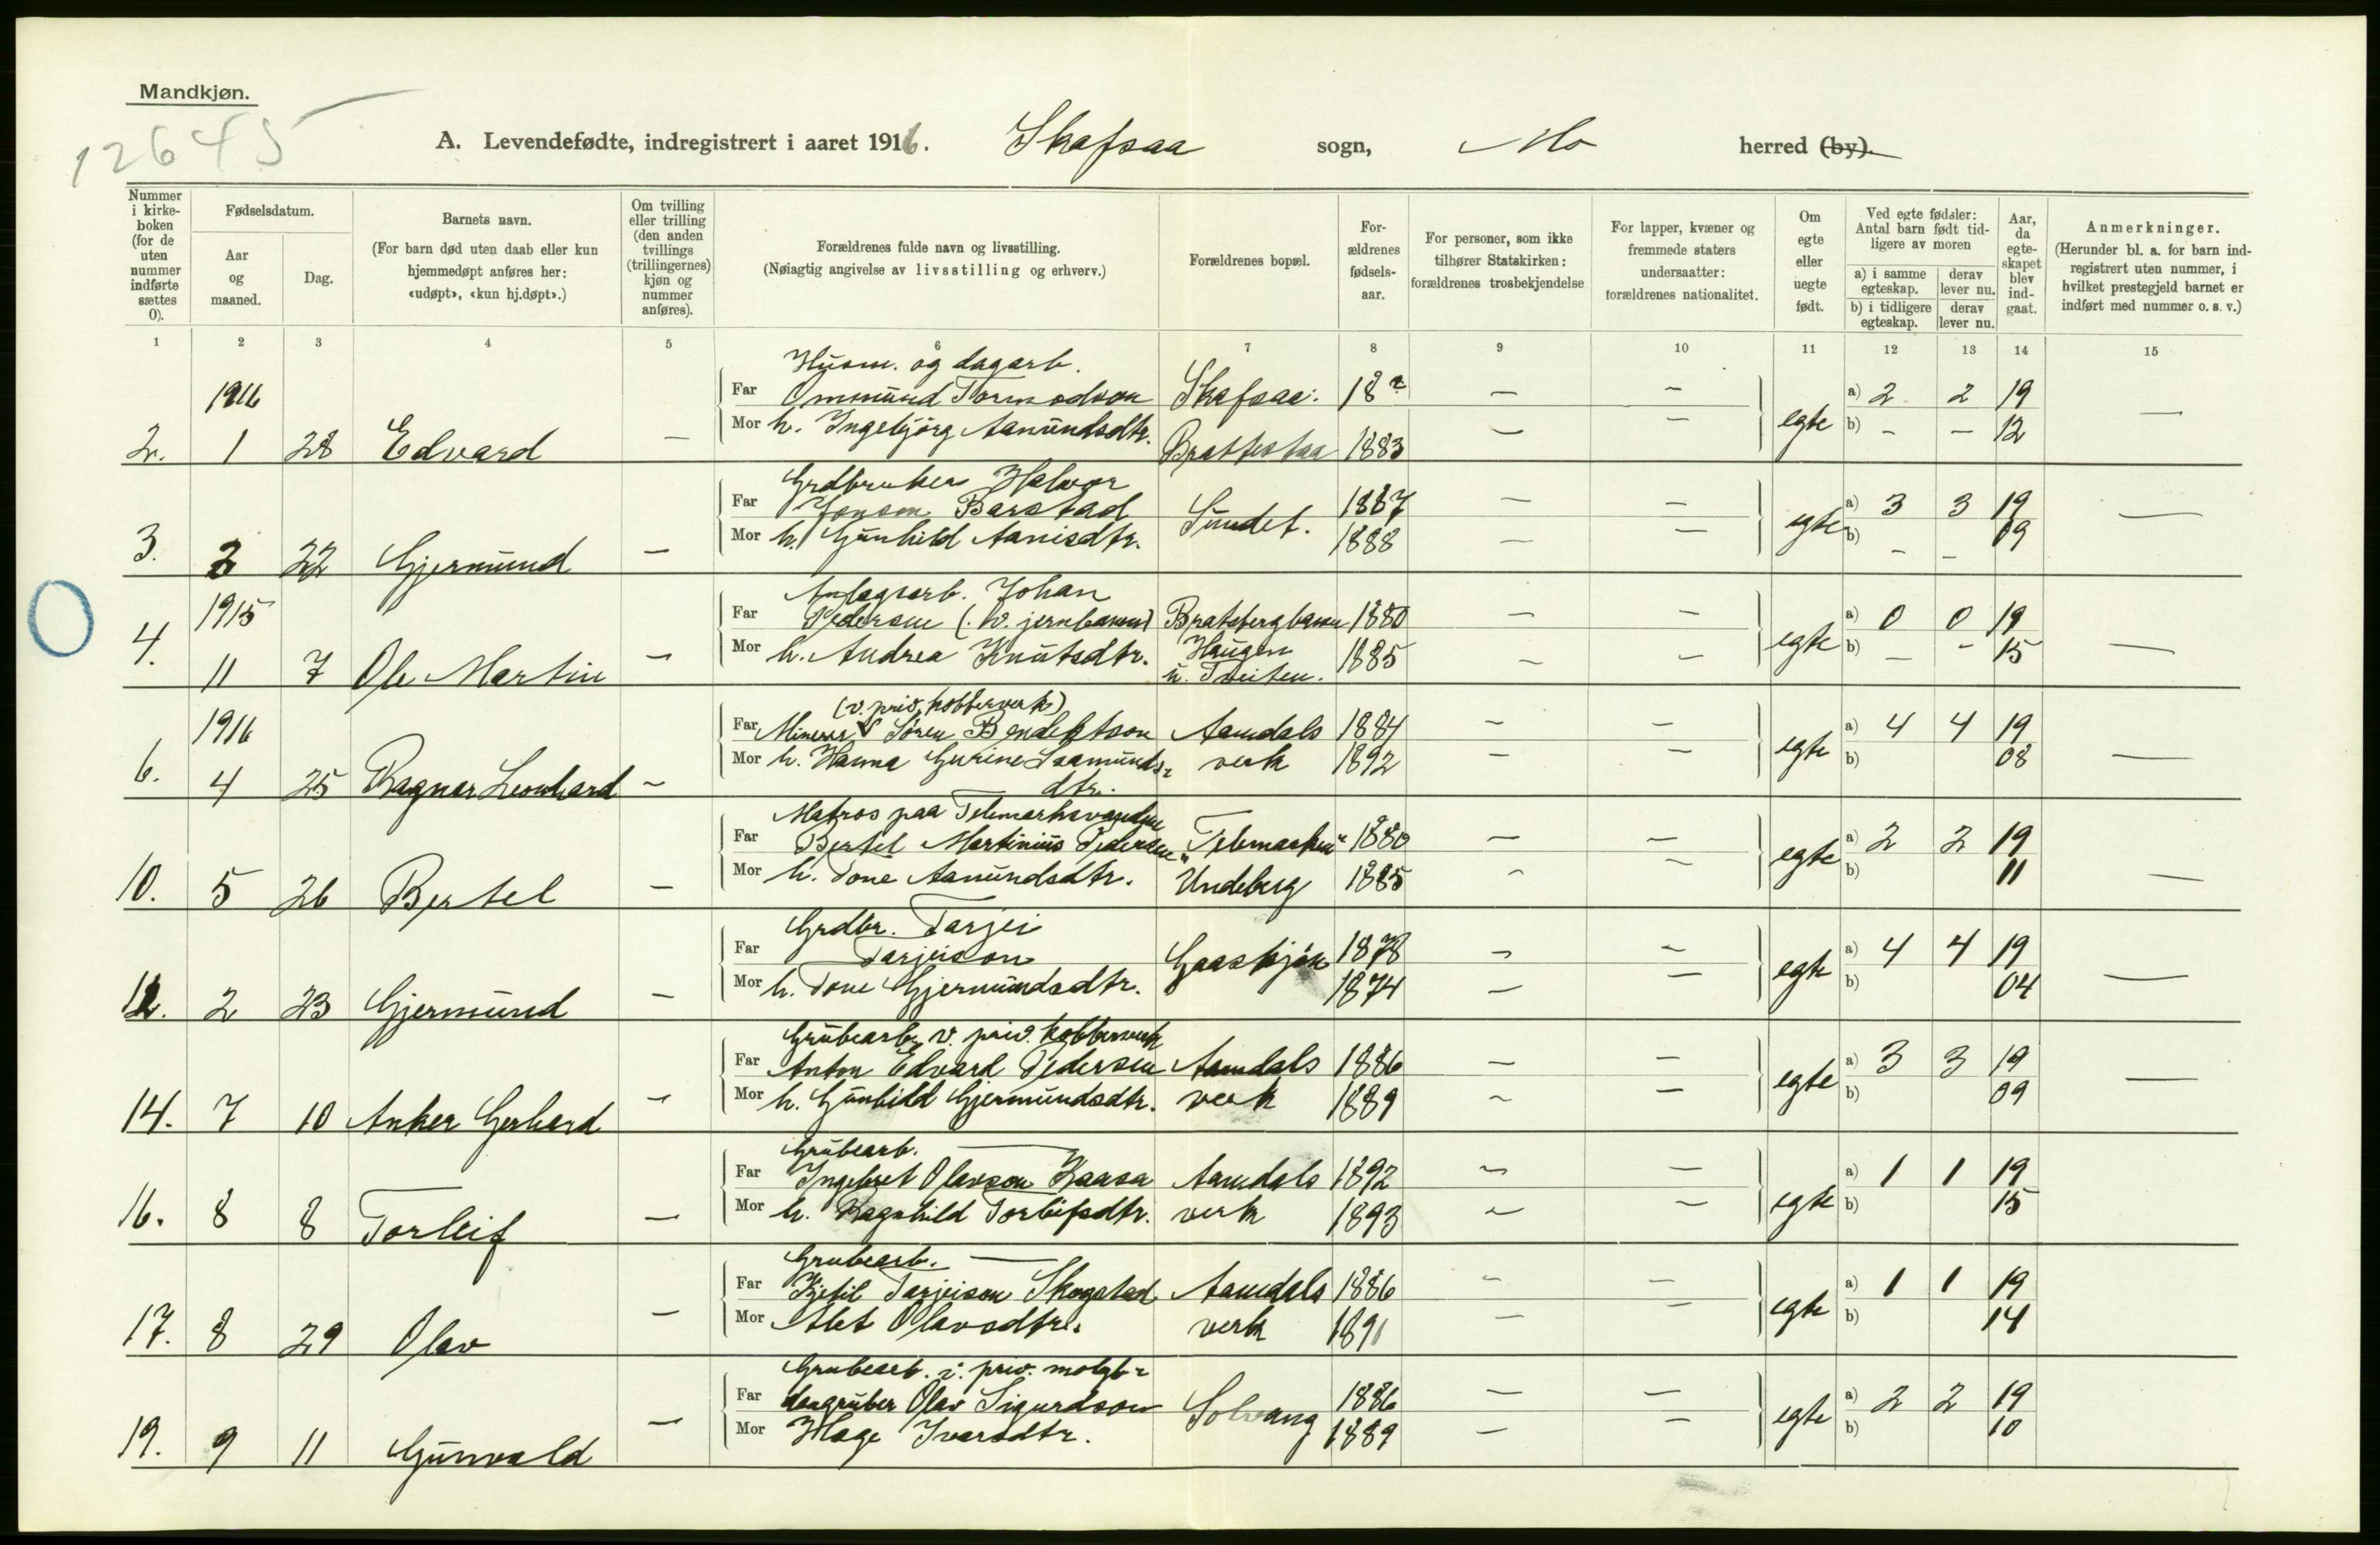 Mandkjøn.
12645
A. Levendefødte, indregistrert i aaret 1916. Skafsaa sogn, Mo herred (by).
Nummer i kirke-boken (for de uten nummer indførte sættes 0).
Fødselsdatum.
Aar og maaned.
Dag.
Barnets navn.
(For barn død uten daab eller kun hjemmedøpt anføres her: «udøpt», «kun hj.døpt».)
Om tvilling eller trilling (den anden tvillings (trillingernes) kjøn og nummer anføres).
Forældrenes fulde navn og livsstilling.
(Nøiagtig angivelse av livsstilling og erhverv.)
Forældrenes bopæl.
For-ældrenes fødsels-aar.
For personer, som ikke tilhører Statskirken: forældrenes trosbekjendelse
For lapper, kvæner og fremmede staters undersaatter: forældrenes nationalitet.
Om egte eller uegte født.
Ved egte fødsler: Antal barn født tid-ligere av moren
a) i samme egteskap.
derav lever nu.
b) i tidligere egteskap.
derav lever nu.
Aar, da egte-skapet blev ind-gaat.
Anmerkninger.
(Herunder bl. a. for barn ind-registrert uten nummer, i hvilket prestegjeld barnet er indført med nummer o. s. v.)
1 2 3 4 5 6 7 8 9 10 11 12 13 14 15
Husm. og dagarb.
1916 Far Ommund Tormodson Skafsaa: 18? — — a) 2 2 19
2. 1 28 Edvard — Mor h. Ingebjørg Aamundsdtr. Brattestaa 1883 — — egte b) - - 12 —
Grdbruker Halvor
Far Jonson Barstad Sundet. 1887 — — a) 3 3 19
3. 2 22 Gjermund — Mor h. Gunhild Aanisdtr. 1888 — — egte b) - - 09 —
Anlegsarb. Johan
1915 Far Pedersen (. v. jernbanen) Bratsbergbanen 1880 — — a) 0 0 19
4. 11 7 Ole Martin — Mor h. Andrea Knutsdtr. Haugen 1885 — — egte b) - - 15 —
u. Tveiten.
(v. priv. kobberverk)
1916 Far Minerer Søren Bendiktson Aamdals 1884 — — a) 4 4 19
6. 4 25 Ragnar Leonhard - Mor h. Hanna Gurine Saamunds- verk 1892 — — egte b) 08 —
dtr.
Matros paa Telemarksvandene
Far Bertel Martinius Pedersen "Telemarken" 1880 — — a) 2 2 19
10. 5 26 Bertel — Mor h. Tone Aamundsdtr. Undeberg 1885 - - egte b) 11 —
Grdbr. Tarjei
Far Tarjeison Gaaskjøn 1878 — — a) 4 4 19
12. 2 23 Gjermund — Mor h. Tone Gjermundsdtr. 1874 — — egte b) 04 —
Grubearb. v. priv. kobberverk
Far Anton Edvard Pedersen Aamdals 1886 — — a) 3 3 19
14. 7 10 Anker Gerhard - Mor h. Gunhild Gjermundsdtr. verk 1889 — — egte b) 09 —
Grubearb. —
Far Ingebret Olavson Kaasa Aamdals 1892 — — a) 1 1 19
16. 8 8 Torleif — Mor h. Ragnhild Torleifsdtr. verk 1893 — — egte b) 15
Grubearb. —
Far Kjetil Tarjeison Skogstad Aamdals 1886 - — a) 1 1 19
17. 8 29 Olav — Mor Alet Olavsdtr. verk 1891 — — egte b) 14
Grubearb. i. priv. molyb-
Far dængruber Olav Sigurdson Solvang 1886 — — a) 2 2 19
19. 9 11 Gunvald — Mor Hæge Ivarsdtr. 1889 — — egte b) 10